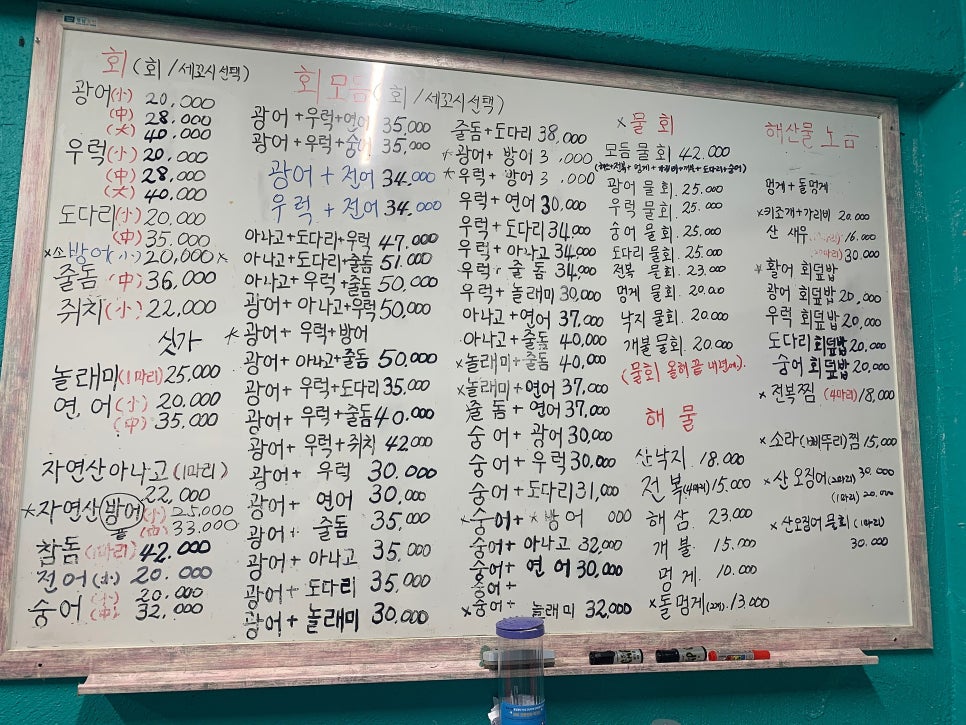 회 (회/세꼬시선택)
광어(小) 20,000
(中) 28,000
(大) 40,000
우럭(小) 20,000
(中) 28,000
(大) 40,000
도다리(小) 20,000
(中) 35,000
×소방어(小) 20,000 ×
줄돔 (中) 36,000
쥐치(小) 22,000
싯가
놀래미(1마리) 25,000
연어(小) 20,000
(中) 35,000
자연산아나고(1마리)
22,000
×자연산방어 (小) 25,000
끝 33,000
참돔(1마리) 42,000
전어(小) 20.000
숭어(小) 20.000
(中) 32,000
회모듬(회/세꼬시선택)
광어+우럭+연어 35,000
광어+우럭+숭어 35,000
광어+전어 34,000
우럭+전어 34,000
아나고+도다리+우럭 47,000
아나고+도다리+줄돔 51,000
아나고+우럭+줄돔 50,000
광어+아나고+우럭 50,000
×광어+우럭+방어
광어+아나고+줄돔 50,000
광어+우럭+도다리 35,000
광어+우럭+줄돔 40,000
광어+우럭+쥐치 42,000
광어+우럭 30,000
광어+연어 30,000
광어+줄돔 35,000
광어+아나고 35,000
광어+도다리 35,000
광어+놀래미 30,000
줄돔+도다리 38,000
×광어+방어 3 ,000
×우럭+방어 3 ,000
우럭+연어 30,000
우럭+도다리 34,000
우럭+아나고 34,000
우럭+줄돔 34,000
우럭+놀래미 30,000
아나고+연어 37,000
아나고+줄돔 40,000
×놀래미+줄돔 40,000
×놀래미+연어 37,000
줄돔+연어 37,000
숭어+광어 30,000
숭어+우럭 30,000
숭어+도다리 31,000
×숭어+×방어 000
숭어+아나고 32,000
숭어+연어 30,000
숭어+
×숭어+놀래미 32,000
×물회
모듬물회 42.000
광어 물회. 25.000
우럭 물회. 25.000
숭어 물회. 25.000
도다리 물회. 25.000
전복 물회. 23.000
멍게 물회. 20.000
낙지 물회. 20.000
개불 물회. 20.000
해물
산낙지 18.000
전복(4마리) 15.000
해삼. 23.000
개불. 15.000
멍게. 10.000
×돌멍게 13.000
해산물
멍게+돌멍게
×키조개+가리비 20.000
산 새우 16.000
30.000
×활어 회덮밥
광어 회덮밥 20,000
우럭 회덮밥 20,000
도다리 회덮밥 20,000
숭어 회덮밥 20,000
×전복찜 (4마리) 18,000
×소라(삐뚜리)찜 15,000
×산 오징어(2마리) 30.000
(1마리) 20.000
×산오징어물회 (1마리)
30.000